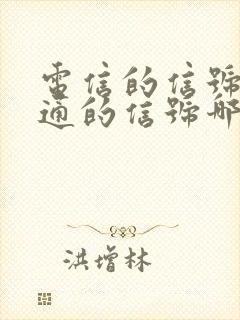 電信的信號
通的信號哪
洪增林